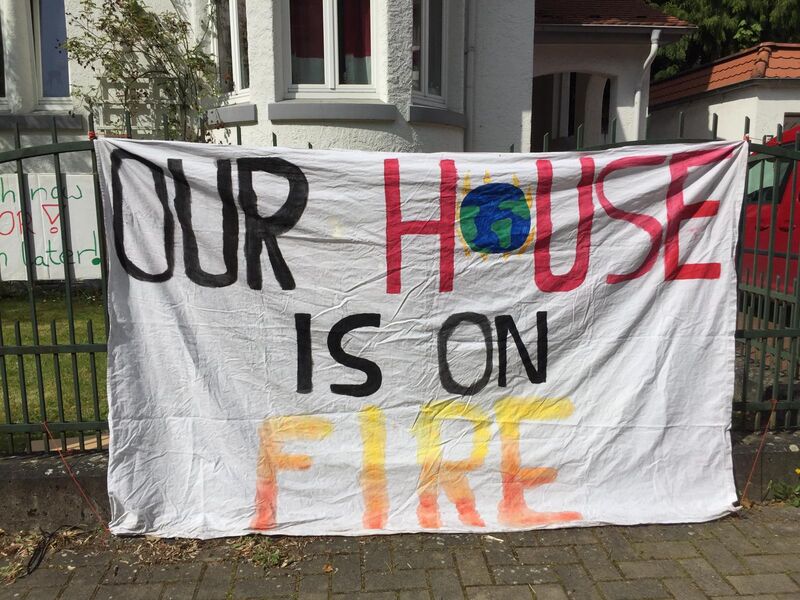 OUR HOUSE
IS ON
FIRE
now
OR
later!